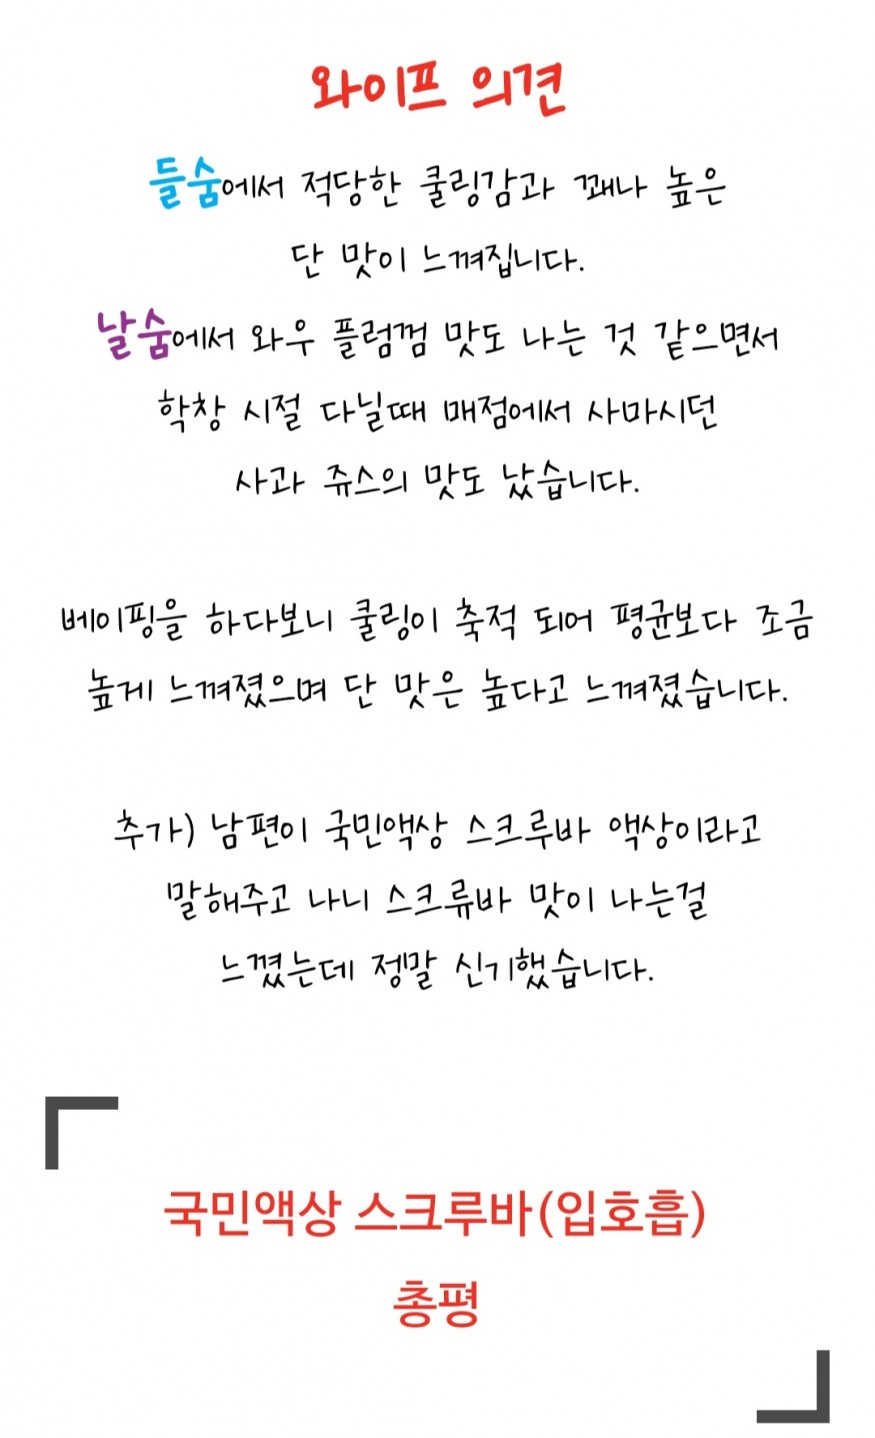 와이프 의견
들숨에서 적당한 쿨링감과 꽤나 높은
단 맛이 느껴집니다.
날숨에서 와우 플럼껌 맛도 나는 것 같으면서
학창 시절 다닐때 매점에서 사마시던
사과 쥬스의 맛도 났습니다.
베이핑을 하다보니 쿨링이 축적 되어 평균보다 조금
높게 느껴졌으며 단 맛은 높다고 느껴졌습니다.
추가) 남편이 국민액상 스크루바 액상이라고
말해주고 나니 스크류바 맛이 나는걸
느꼈는데 정말 신기했습니다.
국민액상 스크루바(입호흡)
총평